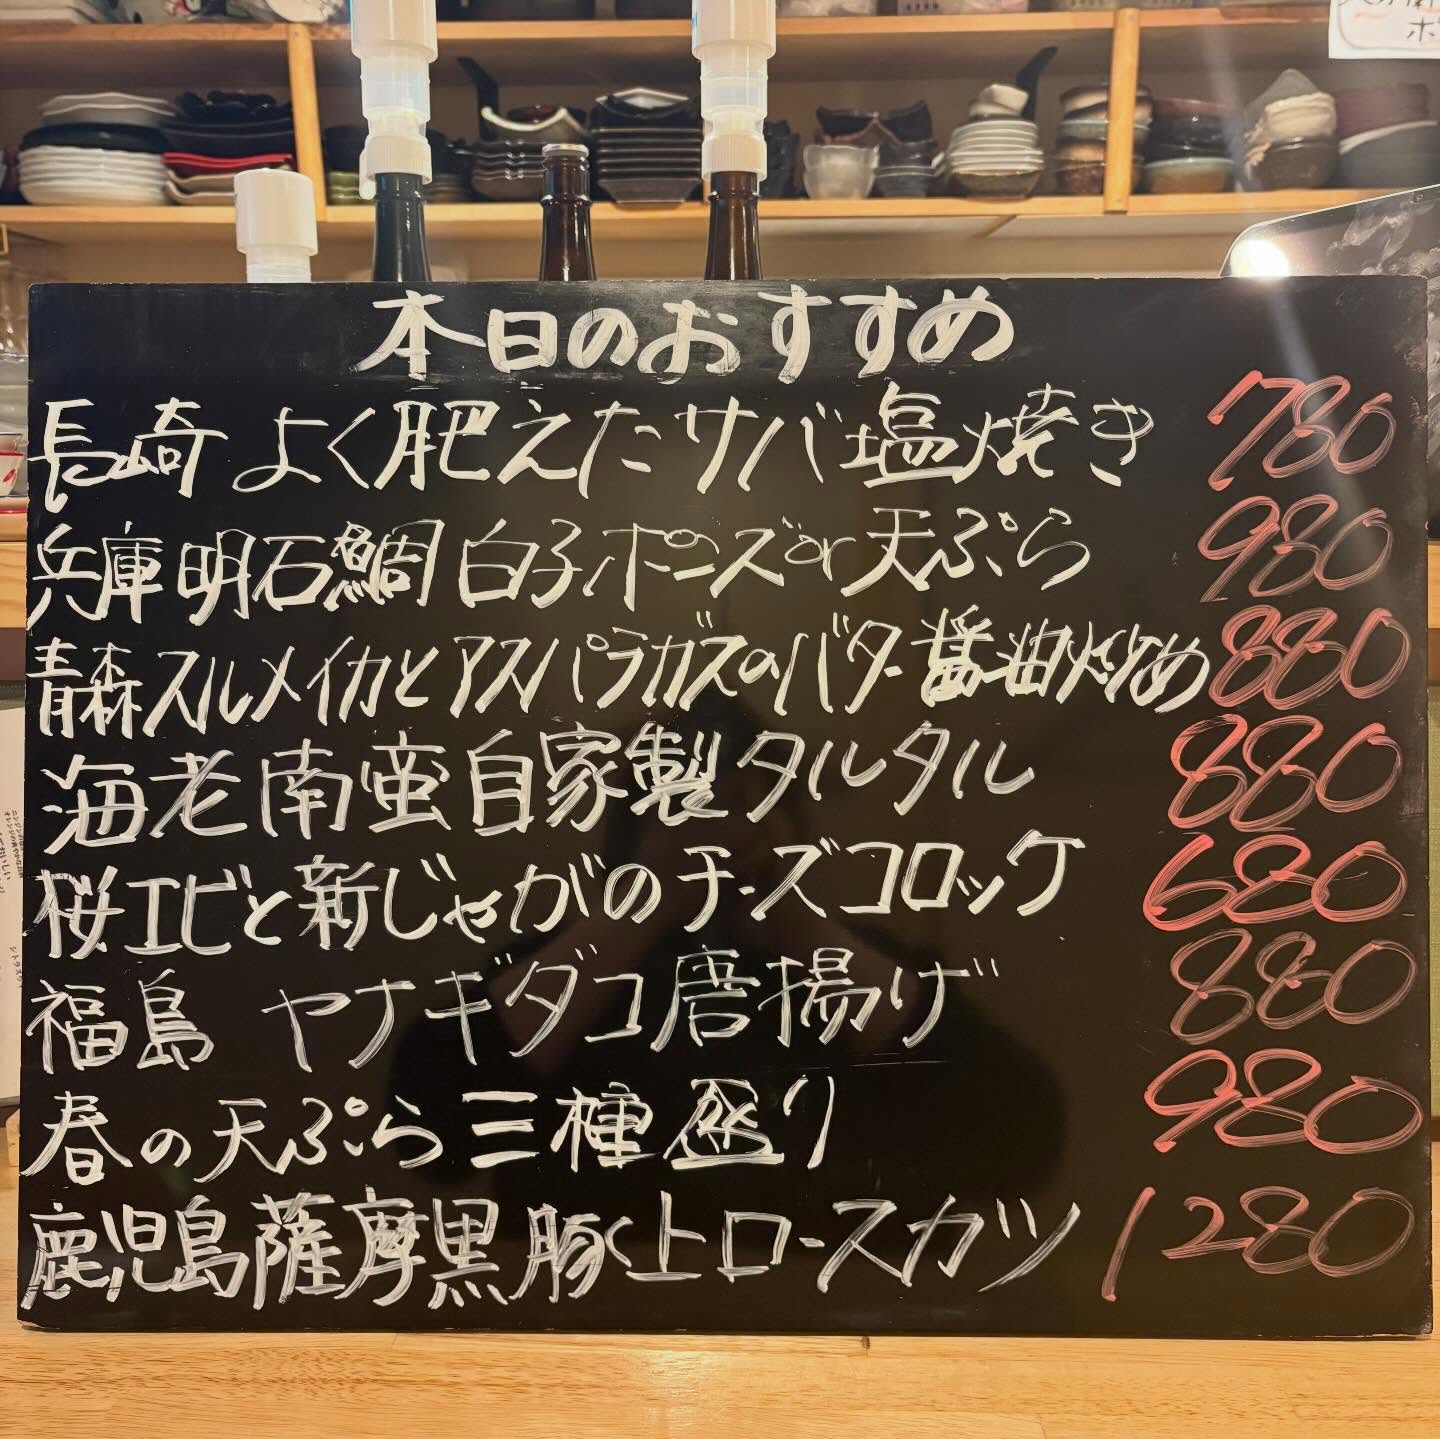 本日のおすすめ
長崎 よく肥えたサバ塩焼き 780
兵庫明石鯛 白子ポンズor天ぷら 980
青森スルメイカとアスパラガスのバター醤油炒め 880
海老南蛮自家製タルタル 880
桜エビと新じゃがのチーズコロッケ 680
福島 ヤナギダコ唐揚げ 880
春の天ぷら三種盛り 980
鹿児島薩摩黒豚く上ロースカツ 1280